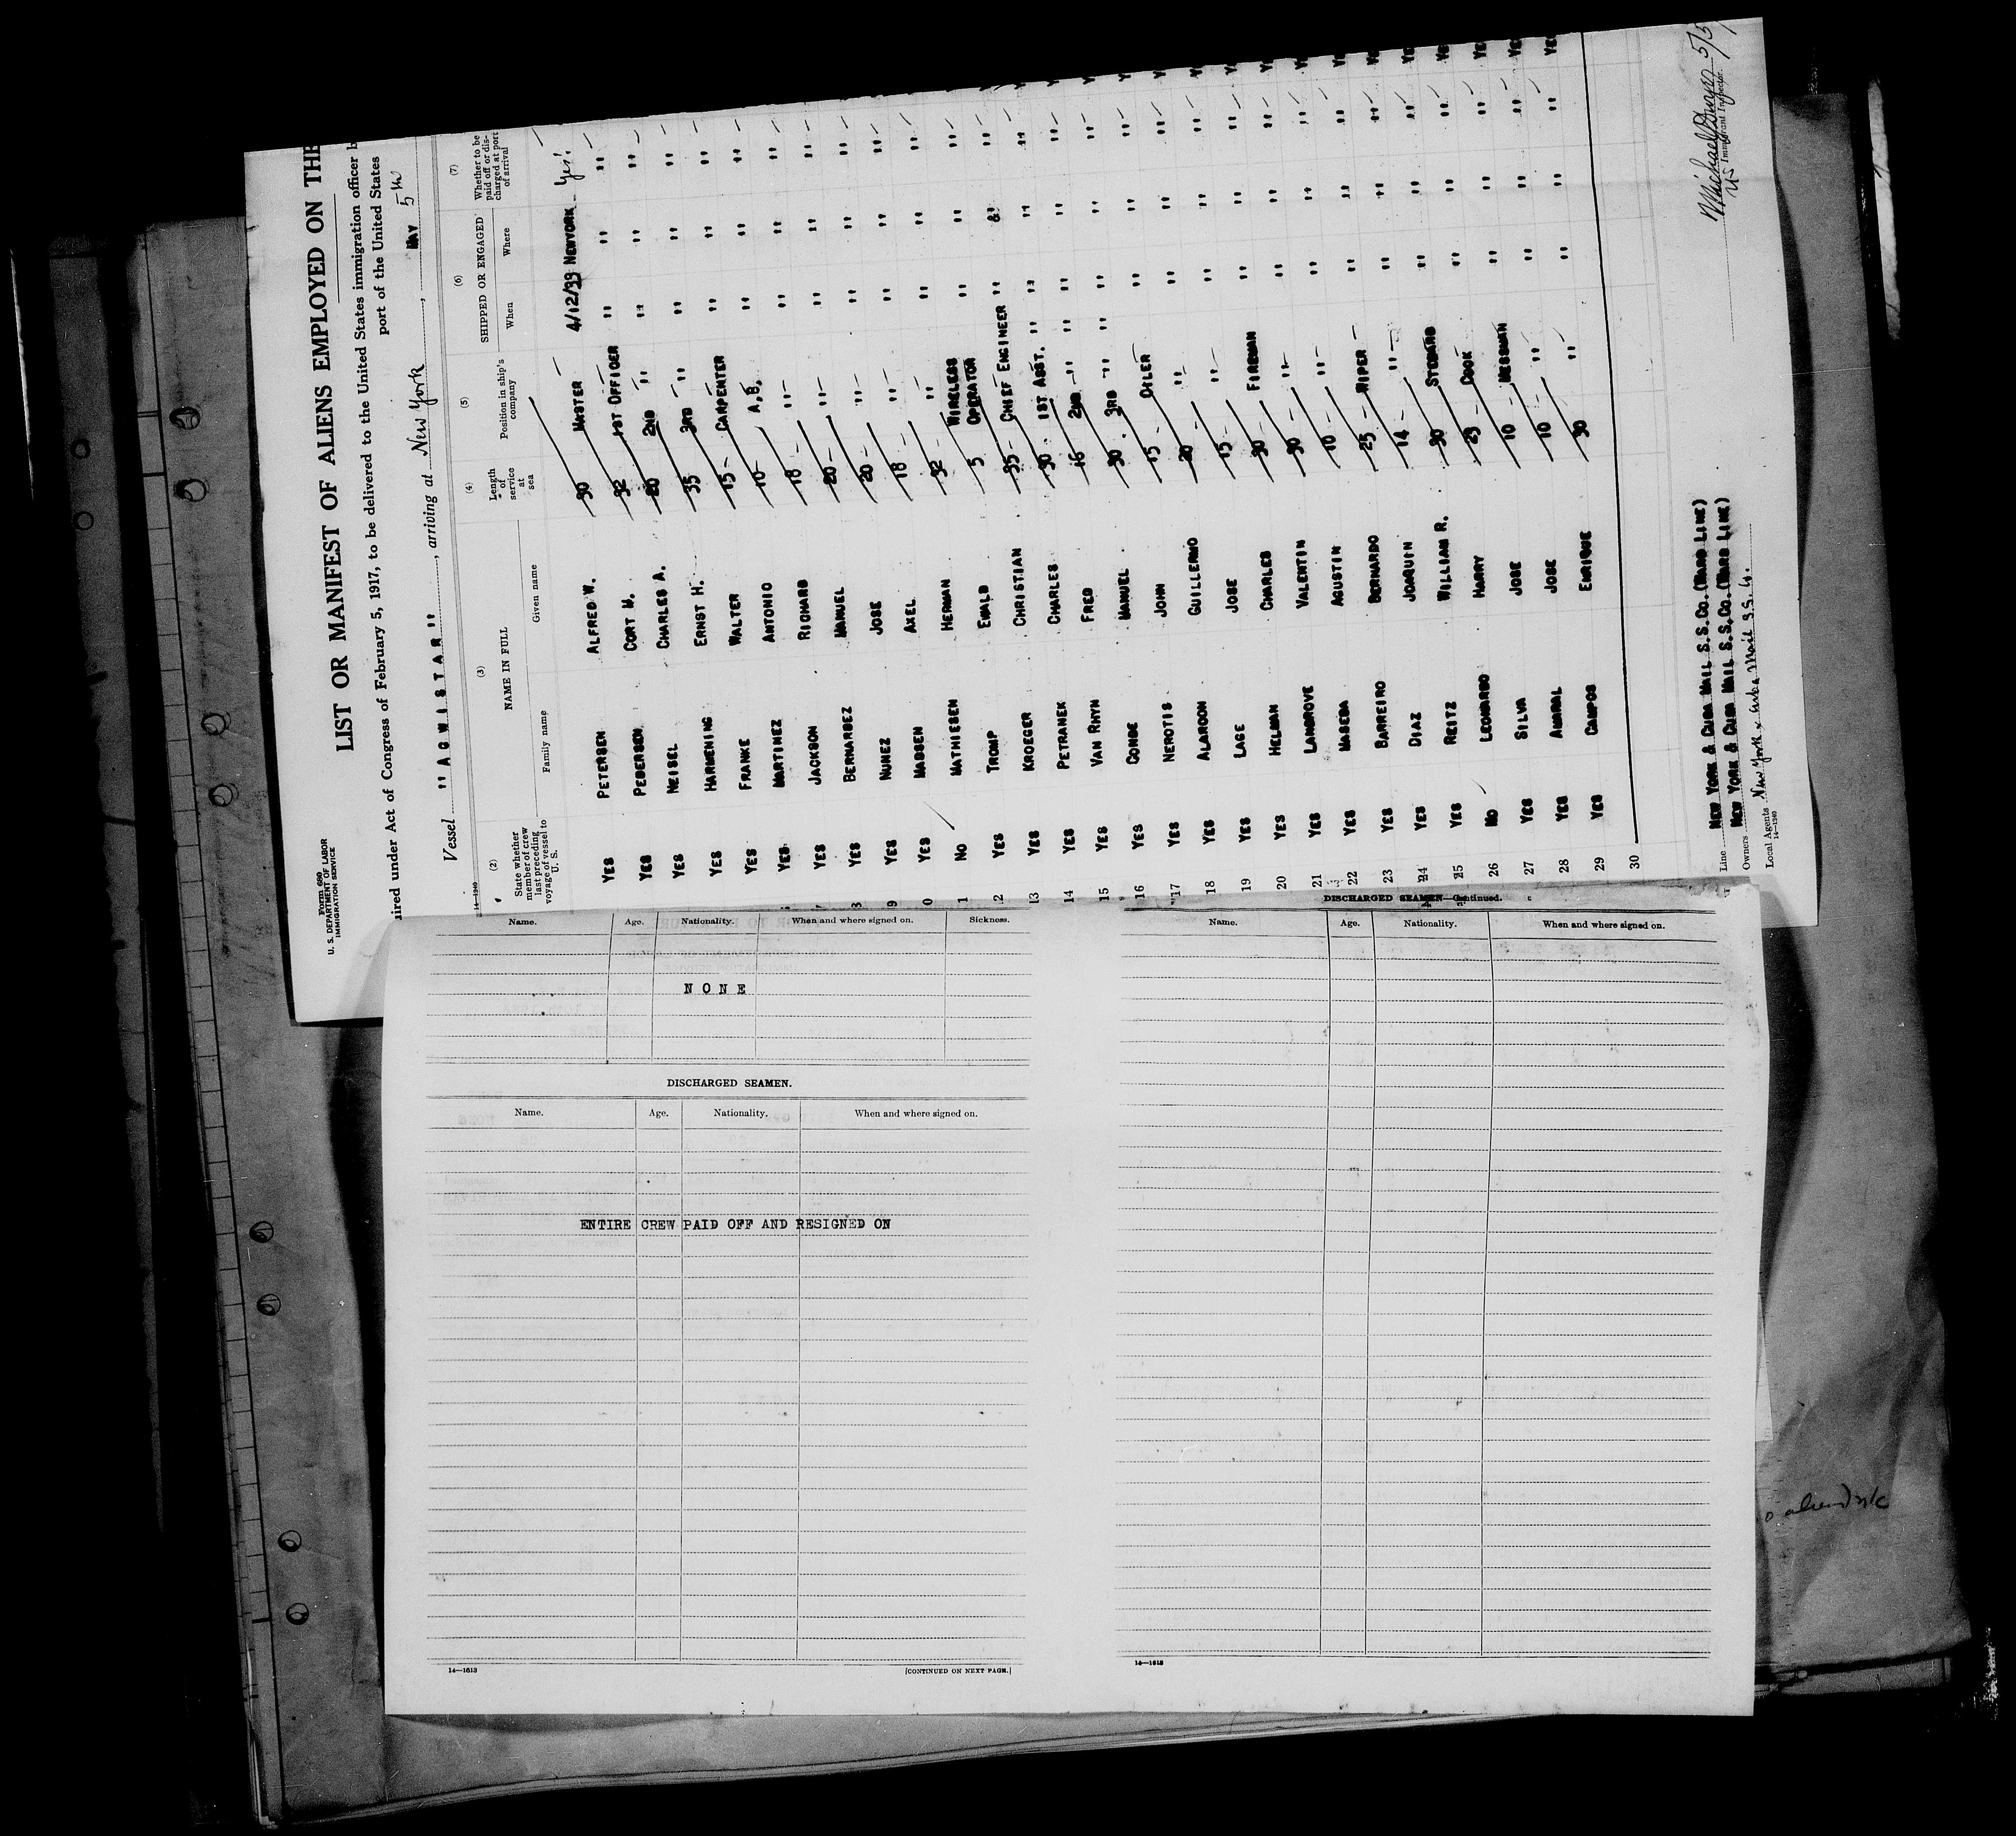 Form 680
U. S. DEPARTMENT OF LABOR
IMMIGRATION SERVICE
LIST OR MANIFEST OF ALIENS EMPLOYED ON THE
ired under Act of Congress of February 5, 1917, to be delivered to the United States immigration officer b
port of the United States
Vessel "AGWISTAR", arriving at New York, MAY 5th
14-1240
(2) (3) (4) (5) (6) (7)
State whether member of crew last preceding voyage of vessel to U. S.
NAME IN FULL
Family name Given name
Length of service at sea
Position in ship's company
SHIPPED OR ENGAGED
When Where
Whether to be paid off or discharged at port of arrival
YES PETERSEN ALFRED W. 30 MASTER 4/12/39 NEWYORK Yes!
YES PEDERSEN CORT M. 32 1ST OFFICER " " "
YES MEISEL CHARLES A. 20 2ND " " " "
YES HARMENING ERNST H. 35 3RD " " " "
YES FRANKE WALTER 15 CARPENTER " " "
YES MARTINEZ ANTONIO 10 A.B. " " "
YES JACKSON RICHARD 18 " " " "
YES BERNARDEZ MANUEL 20 " " " "
9 YES NUNEZ JOSE 20 " " " "
0 YES MADSEN AXEL 18 " " " "
1 NO MATHIESEN HERMAN 32 " " " "
2 YES TROMP EWALD 5 WIRELESS OPERATOR " " "
13 YES KROEGER CHRISTIAN 35 CHIEF ENGINEER " & "
14 YES PETRANEK CHARLES 30 1ST ASST. " " " "
15 YES VAN RHYN FRED 16 2ND " " " " "
16 YES CONDE MANUEL 30 3RD " " " " "
17 YES NEROTIS JOHN 15 OILER " " "
18 YES ALARCON GUILLERMO 20 " " " "
19 YES LAGE JOSE 15 " " " "
20 YES HELMAN CHARLES 30 FIREMAN " " "
21 YES LANDROVE VALENTIN 30 " " " "
22 YES MASEDA AGUSTIN 10 " " " "
23 YES BARREIRO BERNARDO 25 WIPER " " "
24 YES DIAZ JOAQUIN 14 " " " "
25 YES REITZ WILLIAM R. 30 STEWARD " " "
26 NO LEONARDO HARRY 29 COOK " " "
27 YES SILVA JOSE 10 MESSMAN " " "
28 YES AMARAL JOSE 10 " " " "
29 YES CAMPOS ENRIQUE 30 " " " "
30
Line NEW YORK & CUBA MAIL S.S.CO.(WARD LINE)
Owners NEW YORK & CUBA MAIL S.S.CO.(WARD LINE)
Local Agents New York & Cuba Mail S.S. Co.
14-1240
US Immigrant Inspector.
5/5
Name. Age. Nationality. When and where signed on. Sickness.
NONE
DISCHARGED SEAMEN.
Name. Age. Nationality. When and where signed on.
ENTIRE CREW PAID OFF AND RESIGNED ON
14—1613
[CONTINUED ON NEXT PAGE.]
DISCHARGED SEAMEN—Continued.
Name. Age. Nationality. When and where signed on.
14—1613